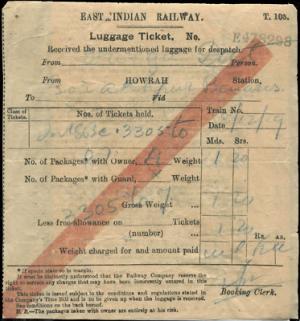 EAST INDIAN RAILWAY. T. 105.
Luggage Ticket, No. E478298
Received the undermentioned luggage for despatch.
From Person,
From HOWRAH Station,
To Viâ
Class of Tickets. Nos. of Tickets held. Train No.
Date
Mds. Srs.
No. of Packages* with Owner, Weight 1 20
No. of Packages* with Guard, Weight
Gross Weight 1 20
Less free allowance on Tickets 1 20
(number)
Weight charged for and amount paid
* If special state so in margin.
It must be distinctly understood that the Railway Company reserve the
right to recover any charges that may have been incorrectly entered in this
ticket.
This ticket is issued subject to the conditions and regulations stated in
the Company's Time Bill and is to be given up when the luggage is received.
See conditions on the back hereof.
N. B.—The packages taken with owner are entirely at his risk.
Booking Clerk.